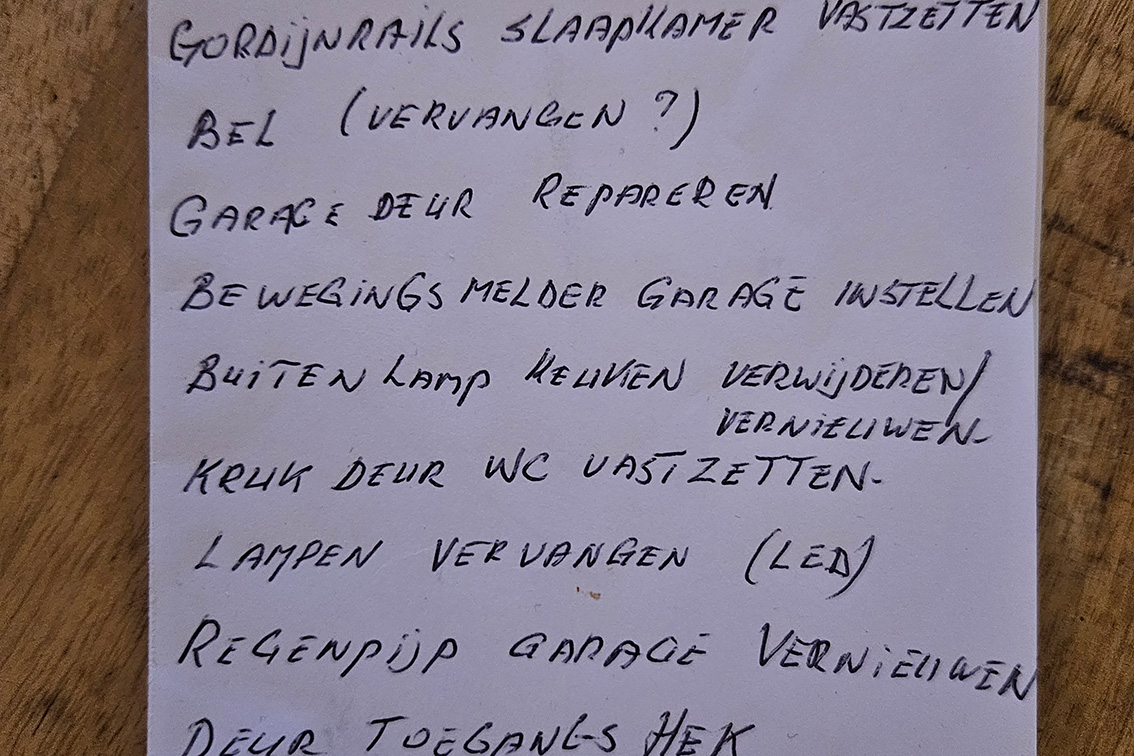 GORDIJNRAILS SLAAPKAMER VASTZETTEN
BEL (VERVANGEN ?)
GARAGE DEUR REPAREREN
BEWEGINGSMELDER GARAGE INSTELLEN
BUITENLAMP KEUKEN VERWIJDEREN/
VERNIEUWEN-
KRUK DEUR WC VASTZETTEN-
LAMPEN VERVANGEN (LED)
REGENPIJP GARAGE VERNIEUWEN
DEUR TOEGANGS HEK